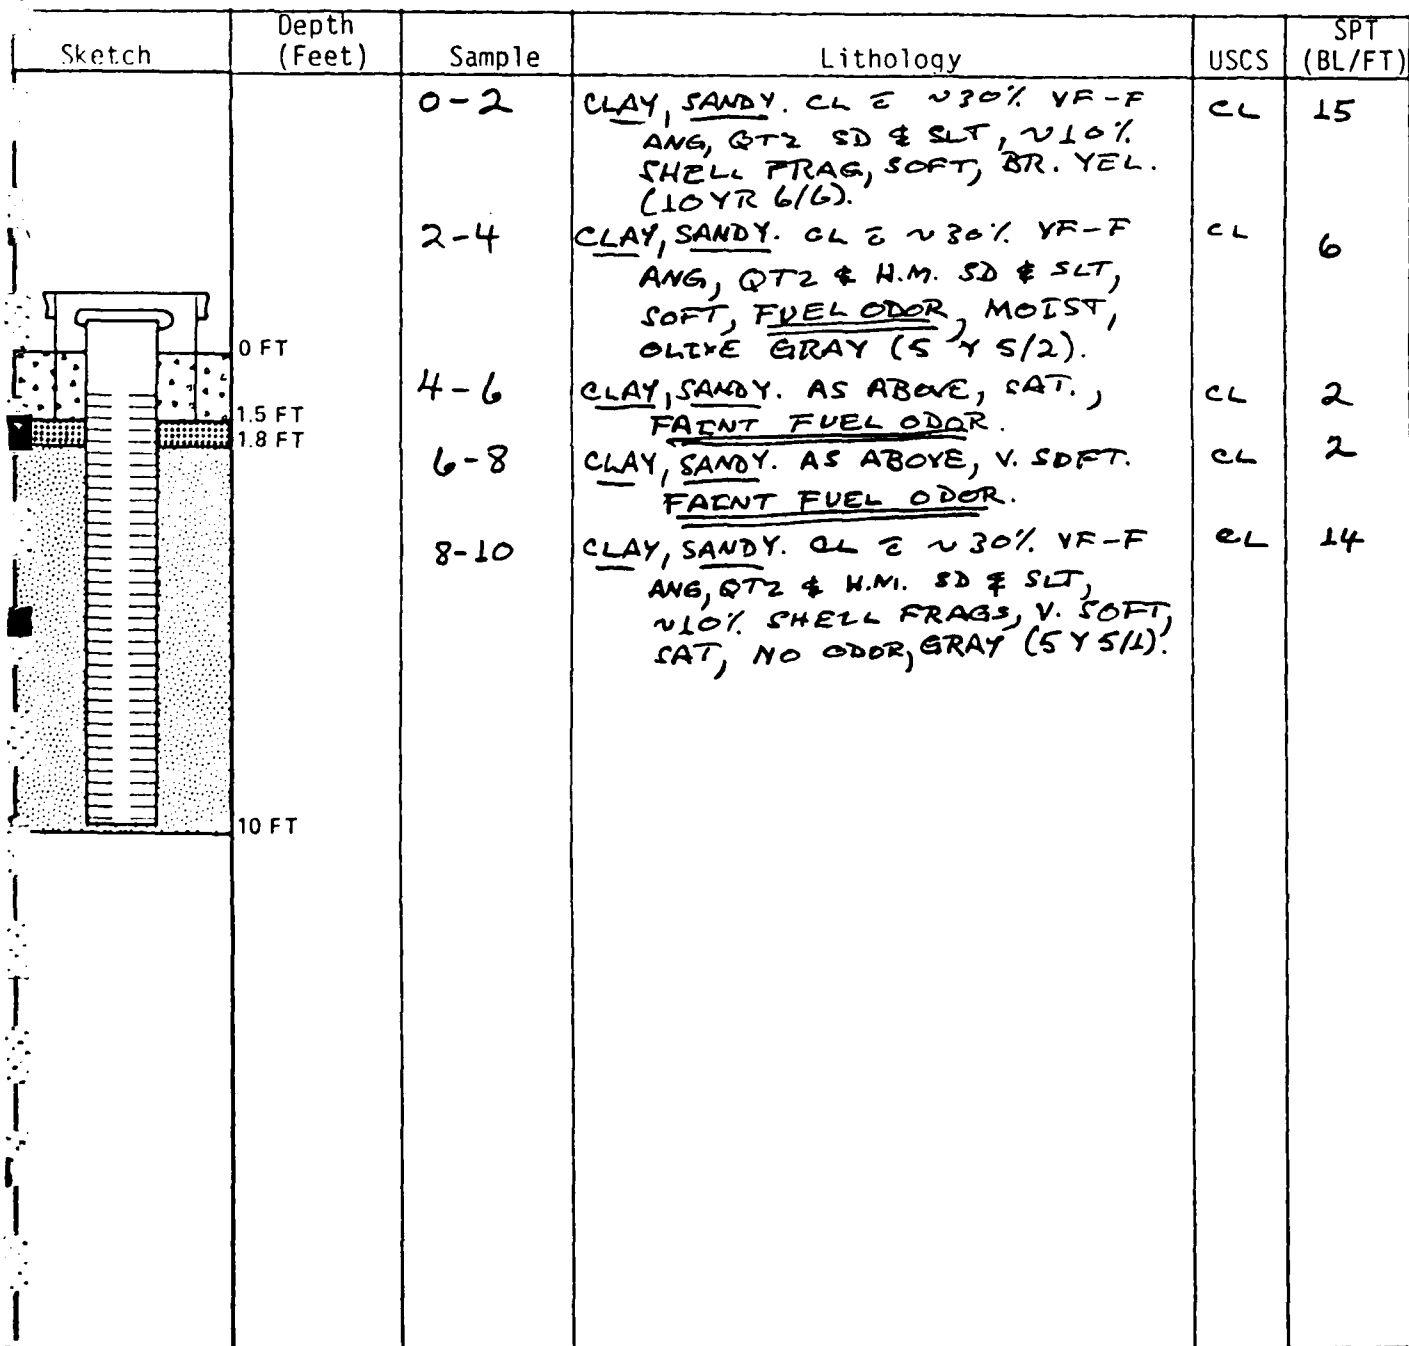 Sketch Depth (Feet) Sample Lithology USCS SPT (BL/FT)
0-2 CLAY, SANDY. CL c̄ ~30% VF-F CL 15
ANG, QTZ SD & SLT, ~10%
SHELL FRAG, SOFT, BR. YEL.
(10YR 6/6).
2-4 CLAY, SANDY. CL c̄ ~30% VF-F CL 6
ANG, QTZ & H.M. SD & SLT,
SOFT, FUEL ODOR, MOIST,
OLIVE GRAY (5 Y 5/2).
0 FT
4-6 CLAY, SANDY. AS ABOVE, SAT., CL 2
FAINT FUEL ODOR.
1.5 FT
1.8 FT
6-8 CLAY, SANDY. AS ABOVE, V. SOFT. CL 2
FAINT FUEL ODOR.
8-10 CLAY, SANDY. CL c̄ ~30% VF-F CL 14
ANG, QTZ & H.M. SD & SLT,
~10% SHELL FRAGS, V. SOFT,
SAT, NO ODOR, GRAY (5 Y 5/1).
10 FT